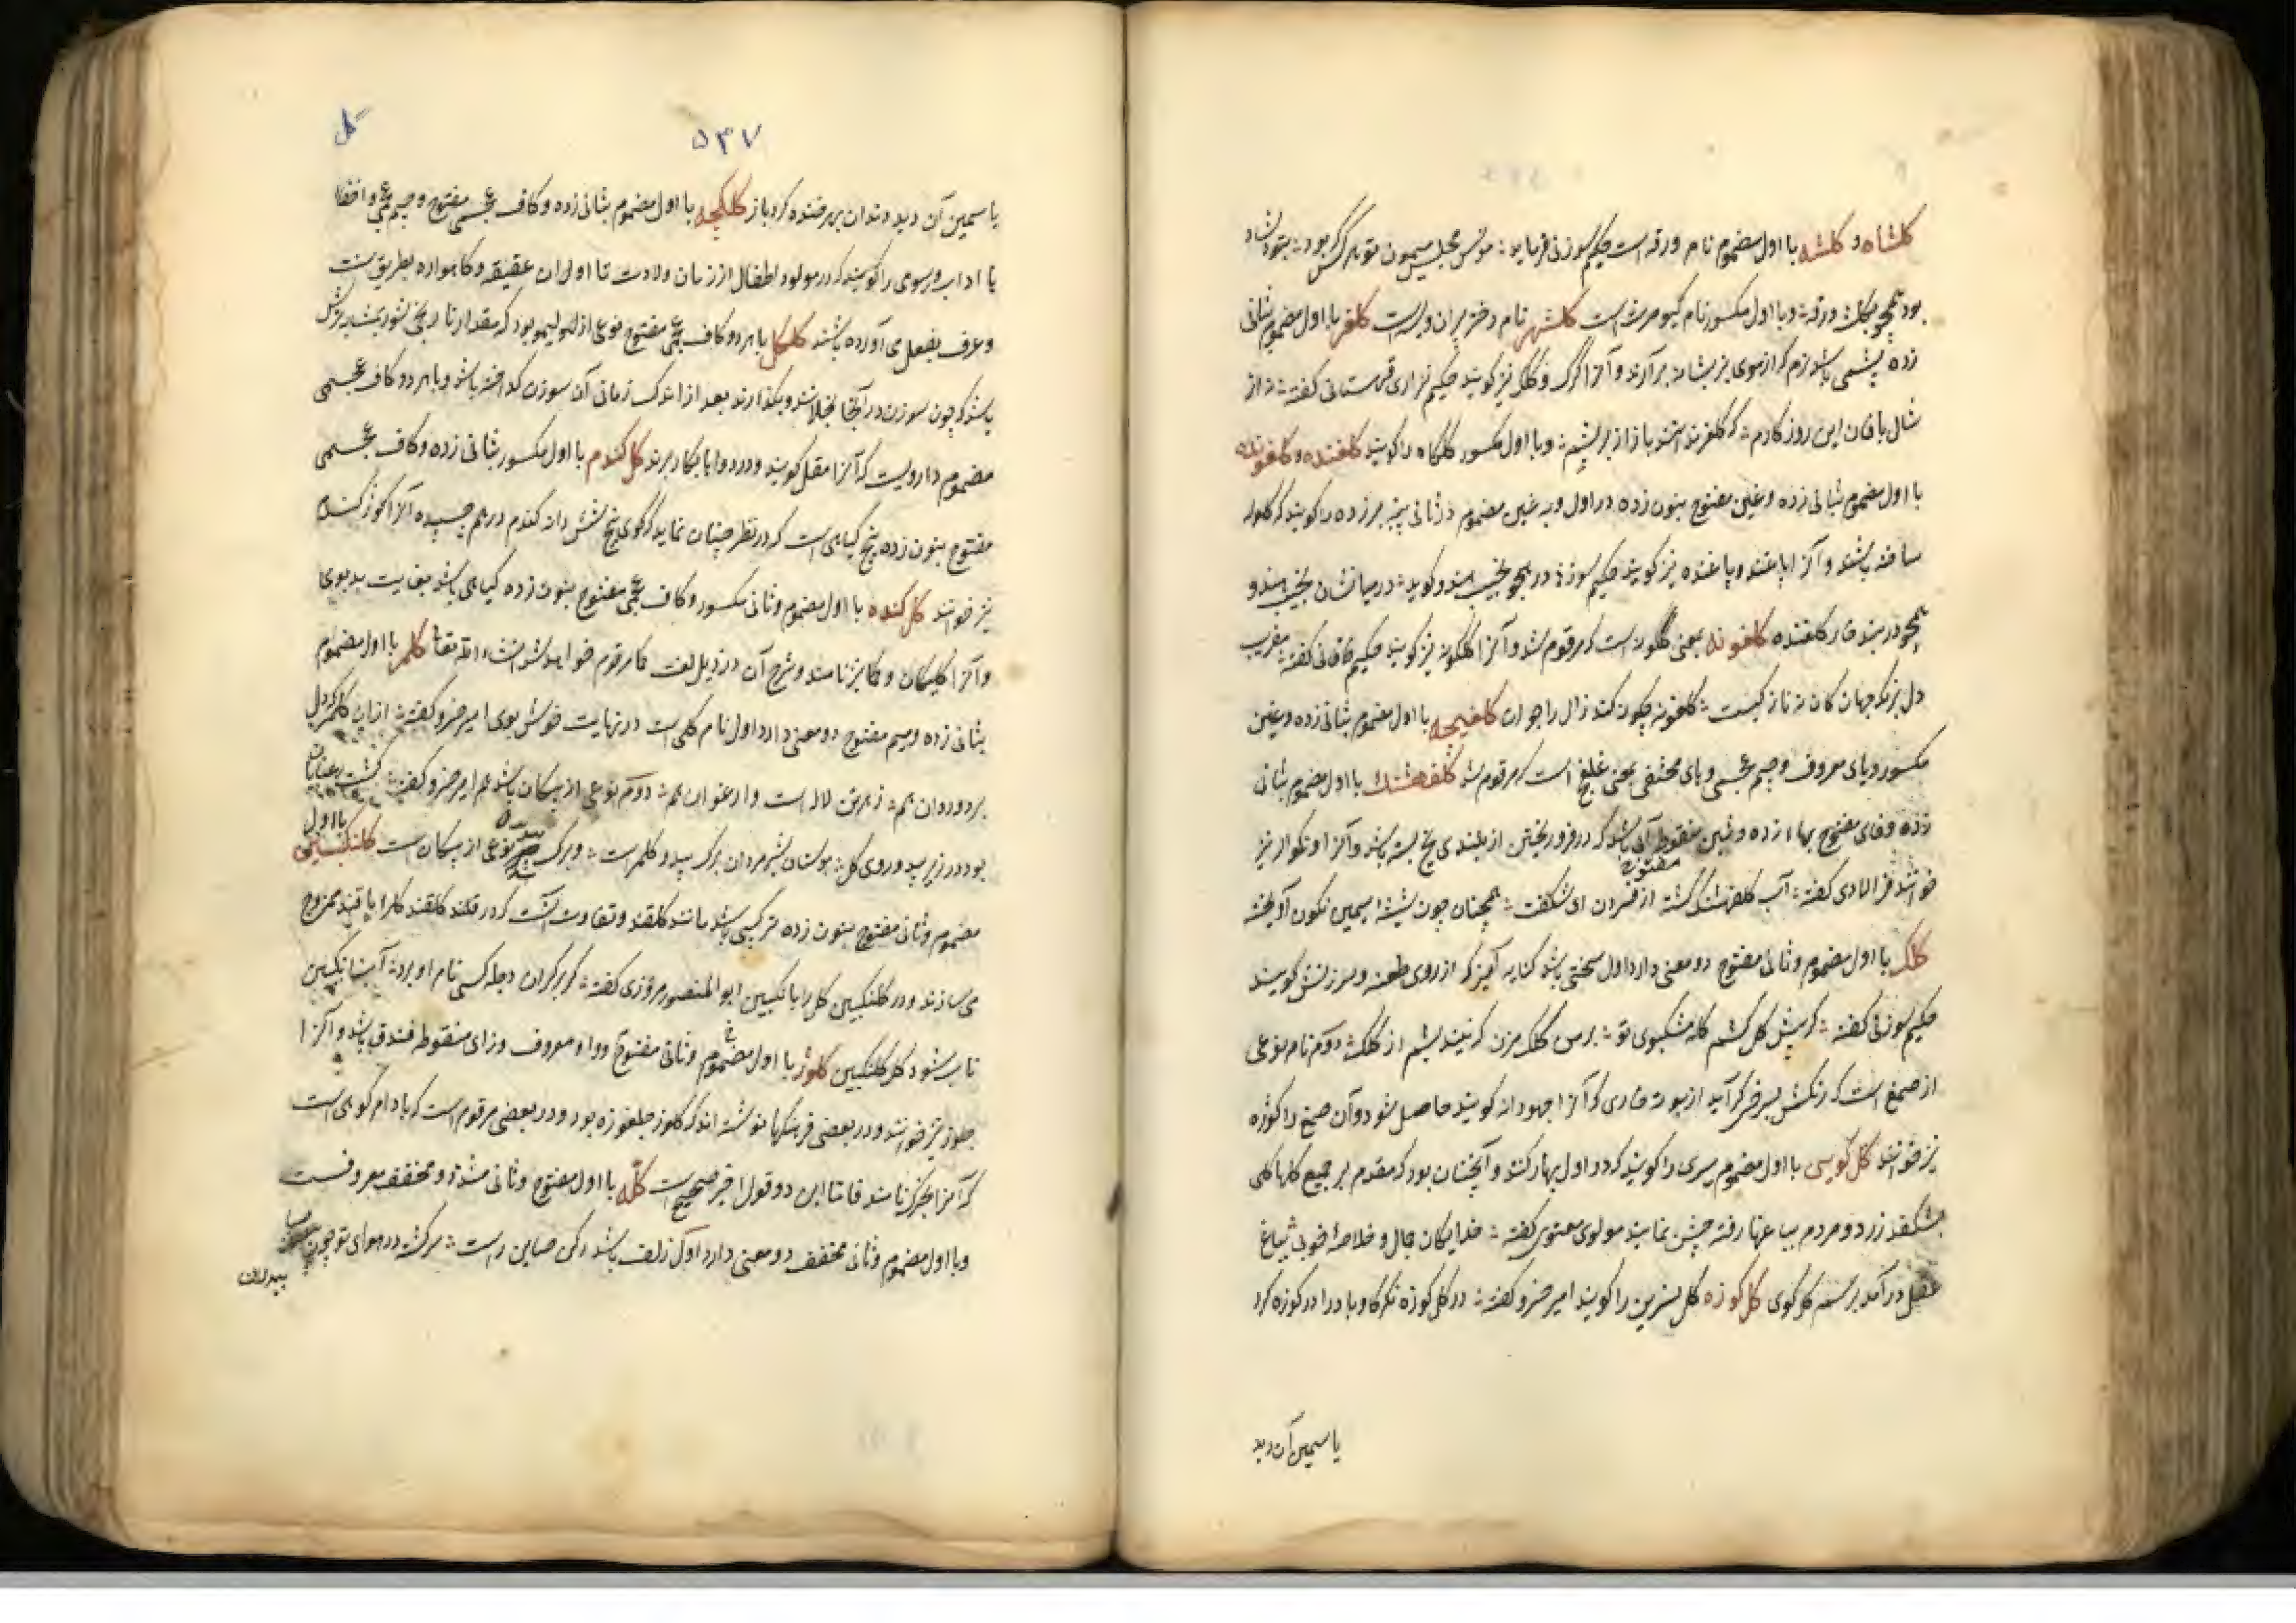 کلشاه و کلشه با اول مضموم نام ورقه است حکیم سوزنی فرماید مونس مجلس میمون تو هر کس بود
بود همچو کلشه ورقه و با اول مکسور نام کیومرث است کلشهر نام دختر پیران ویسه است کلغر با اول مضموم بثانی
زده پشمی باشد نرم که از موی بز بشانه برآرند و آنرا کرک و کلک نیز کویند حکیم نزاری قهستانی کفته از
شال بافان این روز کارم که کلغر ندانند باز از بریشم و با اول مکسور کلکاه را کویند کلغنده و کلغونده
با اول مضموم بثانی زده و غین مفتوح بنون زده در اول و به غین مضموم در ثانی پنبه برزده را کویند که کلوله
ساخته باشند و آنرا باغنده و پاغنده نیز کویند حکیم سوزنی در هجو کوید در میانشان
همچو در پنبه خار کلغنده کلغونه بمعنی کلکونه است که مرقوم شد و آنرا الکونه نیز کویند حکیم خاقانی کفته بفریب
دل بزنک جهان کان نه تازکیست کلغونه چکونه کند زال را جوان کلغیچه با اول مضموم بثانی زده و غین
مکسور و یای معروف و جیم عجمی و های مختفی بمعنی غلغلیج است که مرقوم شد کلفهشنک با اول مضموم بثانی
زده و فای مفتوح بهاء زده و شین منقوط مفتوح آبی باشد که در فرو ریختن از بلندی یخ بسته باشد و آنرا نیز
خوانند فخر الادی کفته آب کلفهشنک کشته از فسردن ای شکفت همچنان چون شیشه سیمین نکون آویخته
کلک با اول مضموم و ثانی مفتوح دو معنی دارد اول سخنی باشد کنایه آمیز که از روی طعنه و سرزنش کویند
حکیم سوزنی کفته کر پیش کل کشم کله مشکبوی تو بر من کلک مزن که نیندیشم از کلک دوم نام نوعی
از صمغ است که رنکش بسرخی کراید از بوته خاری که آنرا جهودانه کویند حاصل شود و آن صمغ را کوژه
نیز خوانند کل کویی با اول مضموم سیری را کویند که در اول بهار کنند و آنچنان بود که مقدم بر جمیع کلها کلی
بشکفد زرد و مردم بباغها رفته جشن نمایند مولوی معنوی کفته خدایکان جمال و خلاصه خوبی بباغ
عقل در آمد برسم کل کوی کل کوزه کل نسرین را کویند امیر خسرو کفته در کل کوزه نکر کاو باد را در کوزه کرد
یاسمین آن دید
۵۴۷
کل
یاسمین آن دید دندان بر سر خنده کرد باز کلکچه با اول مضموم بثانی زده و کاف عجمی مفتوح و جیم عجمی و اخفا
ها اداب و رسومی را کویند که در مولود اطفال از زمان ولادت تا اوان عقیقه و کاهواره بطریق سنت
و عرف بفعل می آورده باشند کلکل با هر دو کاف عجمی مفتوح نوعی از لیمو بود که مقدار نارنجی شود بمثابه ترش
باشد که چون سوزن در آنجا بخلانند و بکذارند بعد از اندک زمانی آن سوزن کداخته باشد و با هر دو کاف عجمی
مضموم دارویست که آنرا مقل کویند و در دواها بکار برند کل کندم با اول مکسور بثانی زده و کاف عجمی
مفتوح بنون زده بیخ کیاهی است که در نظر چنان نماید که کوی پنج شش دانه کندم در هم چسپیده آنرا کوز کندم
نیز خوانند کل کنده با اول مضموم و ثانی مکسور و کاف عجمی مفتوح بنون زده کیاهی باشد بغایت بدبوی
و آنرا کلیکان و کما نیز نامند و شرح آن در ذیل لغت کما مرقوم خواهد شد انشاء الله تعالی کلمر با اول مضموم
بثانی زده و میم مفتوح دو معنی دارد اول نام کلی است در نهایت خوش بوی امیر خسرو کفته ازان کلمر که دل
بر دو روان هم زهرش لاله است و ارغوان هم دوم نوعی از پیکان باشد هم امیر خسرو کفته کشت
بود در زیر بید و روی کل بوستان شیرمردان برک بید و کلمر است و برک بید نوعی از پیکان است کلنکبین با اول
مضموم و ثانی مفتوح بنون زده ترکیبی باشد مانند کلقند و تفاوت آنست که در کلقند کل را با قند ممزوج
می سازند و در کلنکبین کل را با انکبین ابو المنصور مروزی کفته کر بر کران دجله کسی نام او برد آب انکبین
ناب شود کل کلنکبین کلوز با اول مضموم و ثانی مفتوح و واو معروف و زای منقوطه فندق باشد و آنرا
جلوز نیز خوانند و در بعضی فرهنکها نوشته اند که کلوز چلغوزه بود و در بعضی مرقوم است که بادام کوهی است
که آنرا بخرک نامند فاما این دو قول اخیر صحیح است کله با اول مفتوح و ثانی مشدد و مخفف معروفست
و با اول مضموم و ثانی مخفف دو معنی دارد اول زلف باشد رکن صاین راست سرکشته در هوای تو چون